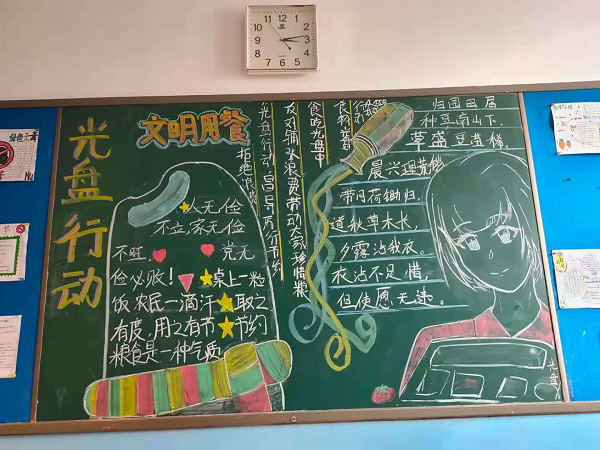 光盘行动
文明用餐
人无俭
不立,家无俭
不旺,党无
俭必败!桌上一粒
饭,农民一滴汗 取之
有度,用之有节 节约
粮食是一种气质
拒绝浪费
光盘行动,倡导
反对铺张浪费带动大家珍惜粮
食吃光盘中
归园田居
种豆南山下,
草盛豆苗稀。
晨兴理荒秽
带月荷锄归。
道狭草木长,
夕露沾我衣。
衣沾不足惜,
但使愿无违。
光盘